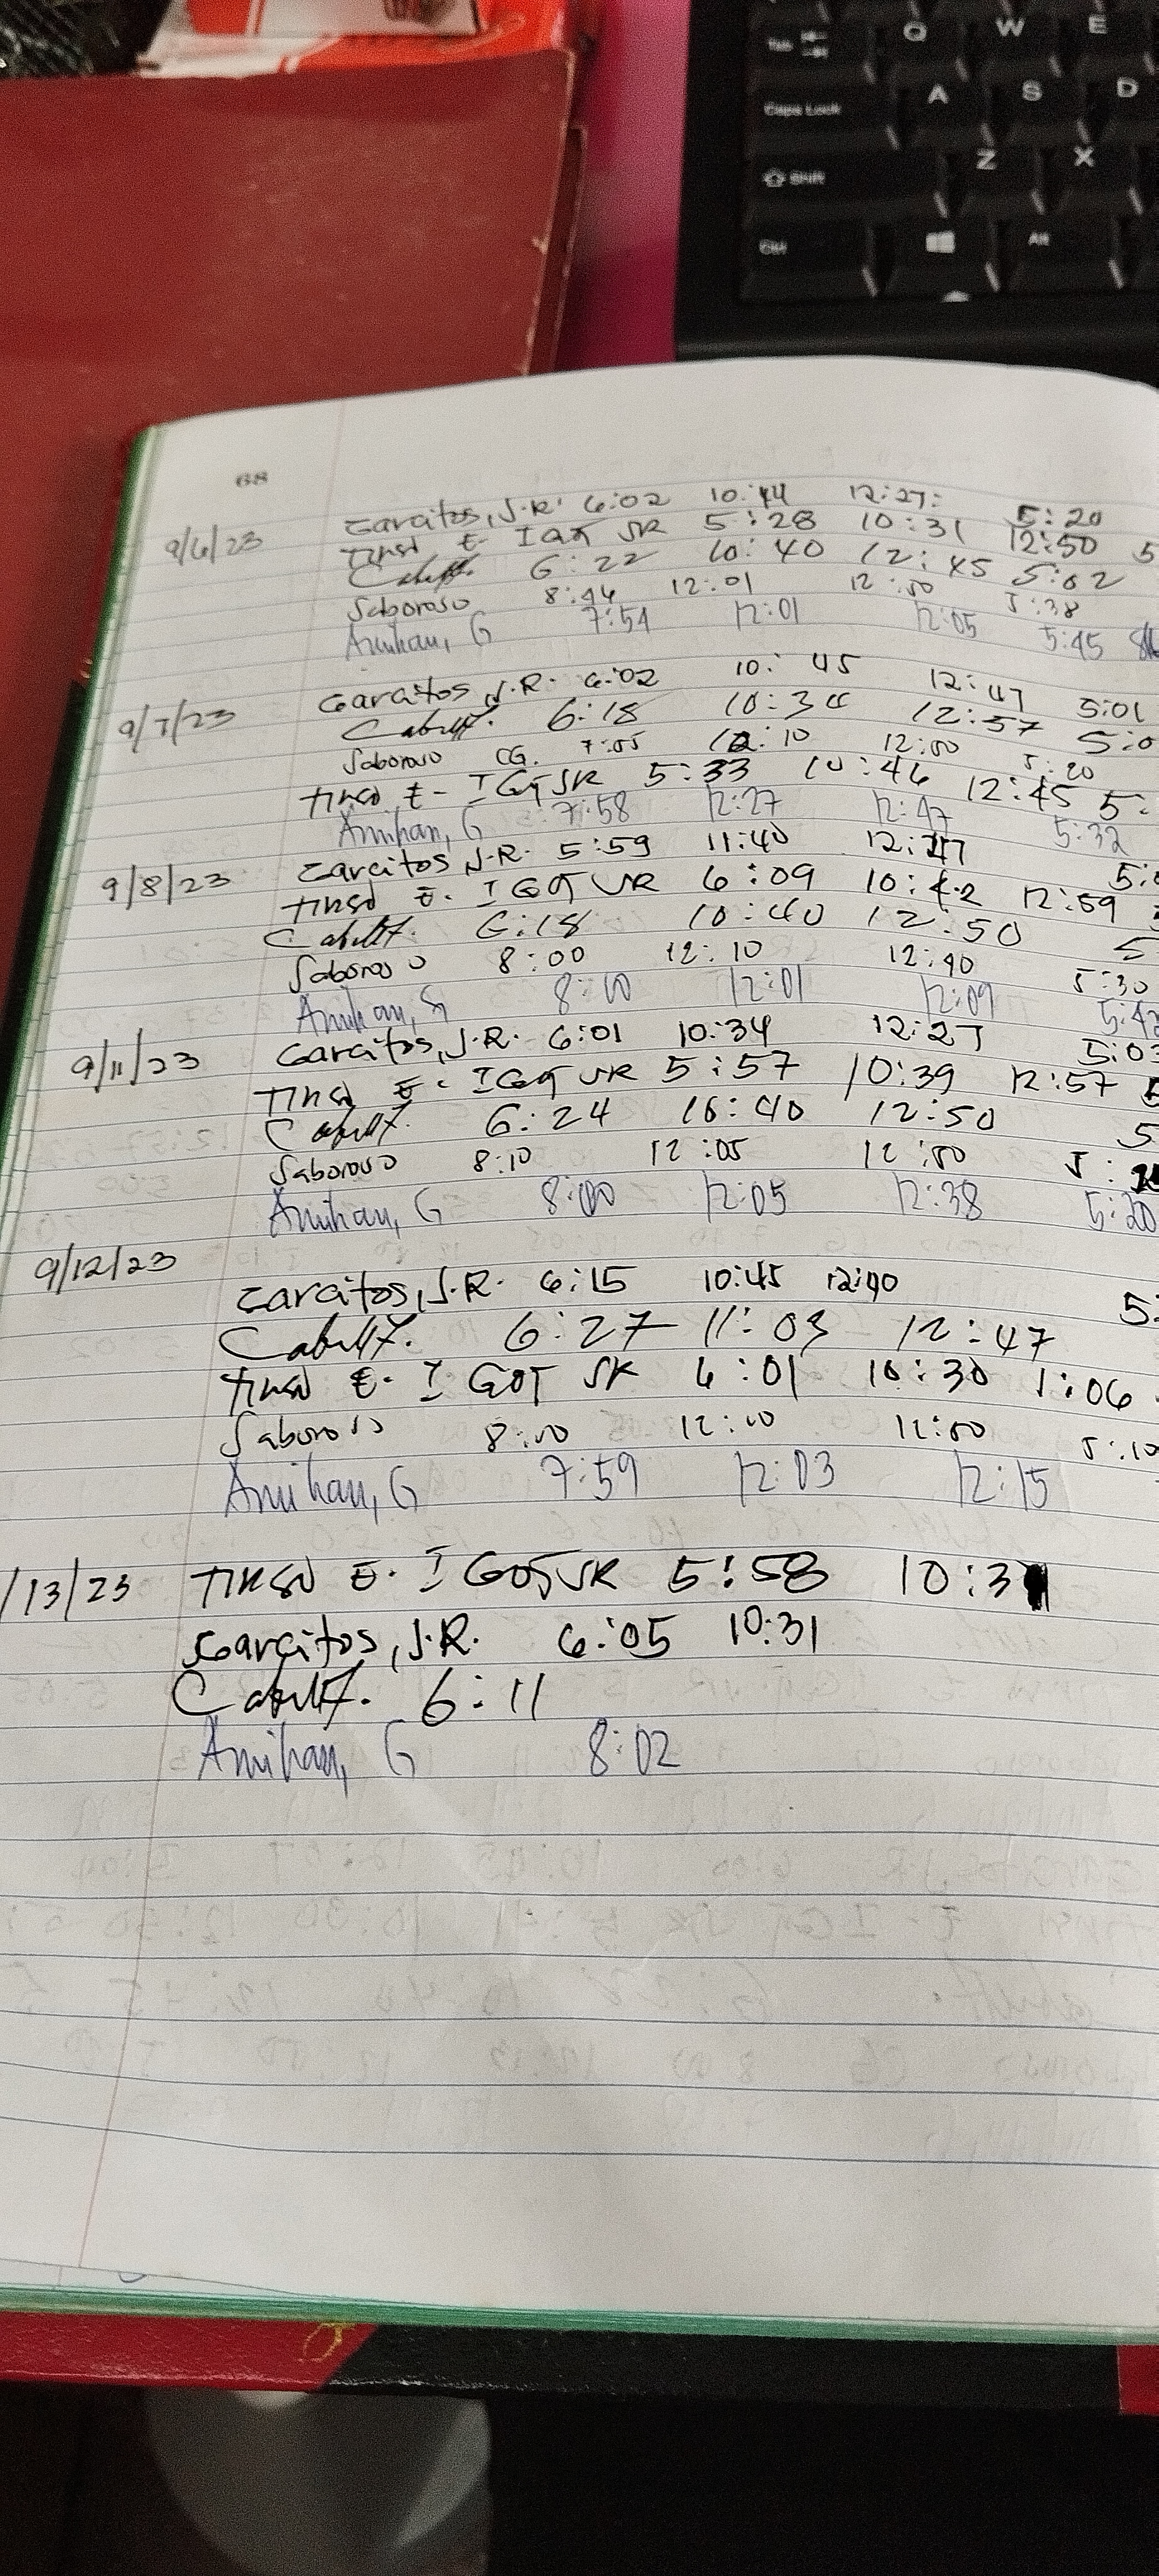 Tab Q W E
Caps Lock A S D
Shift Z X
Ctrl Alt
68
9/6/23 Garcitos, J.R. 6:02 10:44 12:27: 5:20
Tingo E- IGOT SR 5:28 10:31 12:50 5
6:22 10:40 12:45 5:02
Saboroso 8:46 12:01 12:50 5:38
Amihan, G 7:54 12:01 12:05 5:45
9/7/23 Garcitos J.R. 6:02 10:45 12:47 5:01
6:18 10:30 12:57 5:0
Saboroso CG. 7:55 12:10 12:50 5:20
E- IGOT SR 5:33 10:46 12:45 5:
Amihan, G 7:58 12:27 12:47 5:32
9/8/23 Garcitos J.R. 5:59 11:40 12:47 5:
E. IGOT SR 6:09 10:42 12:59
6:18 10:40 12:50 5
Saboroso 8:00 12:10 12:40 5:30
Amihan, G 8:00 12:01 12:09 5:42
9/11/23 Garcitos, J.R. 6:01 10:34 12:27 5:03
E- IGOT SR 5:57 10:39 12:57
6:24 10:40 12:50 5
Saboroso 8:10 12:05 12:50 5:
Amihan, G 8:00 12:05 12:38 5:20
9/12/23
Garcitos, J.R. 6:15 10:45 12:40 5:
6:27 11:03 12:47
E. IGOT SR 6:01 10:30 1:06
Saboroso 8:00 12:00 12:50 5:10
Amihan, G 7:59 12:03 12:15
/13/23 E. IGOT SR 5:58 10:31
Garcitos, J.R. 6:05 10:31
6:11
Amihan, G 8:02